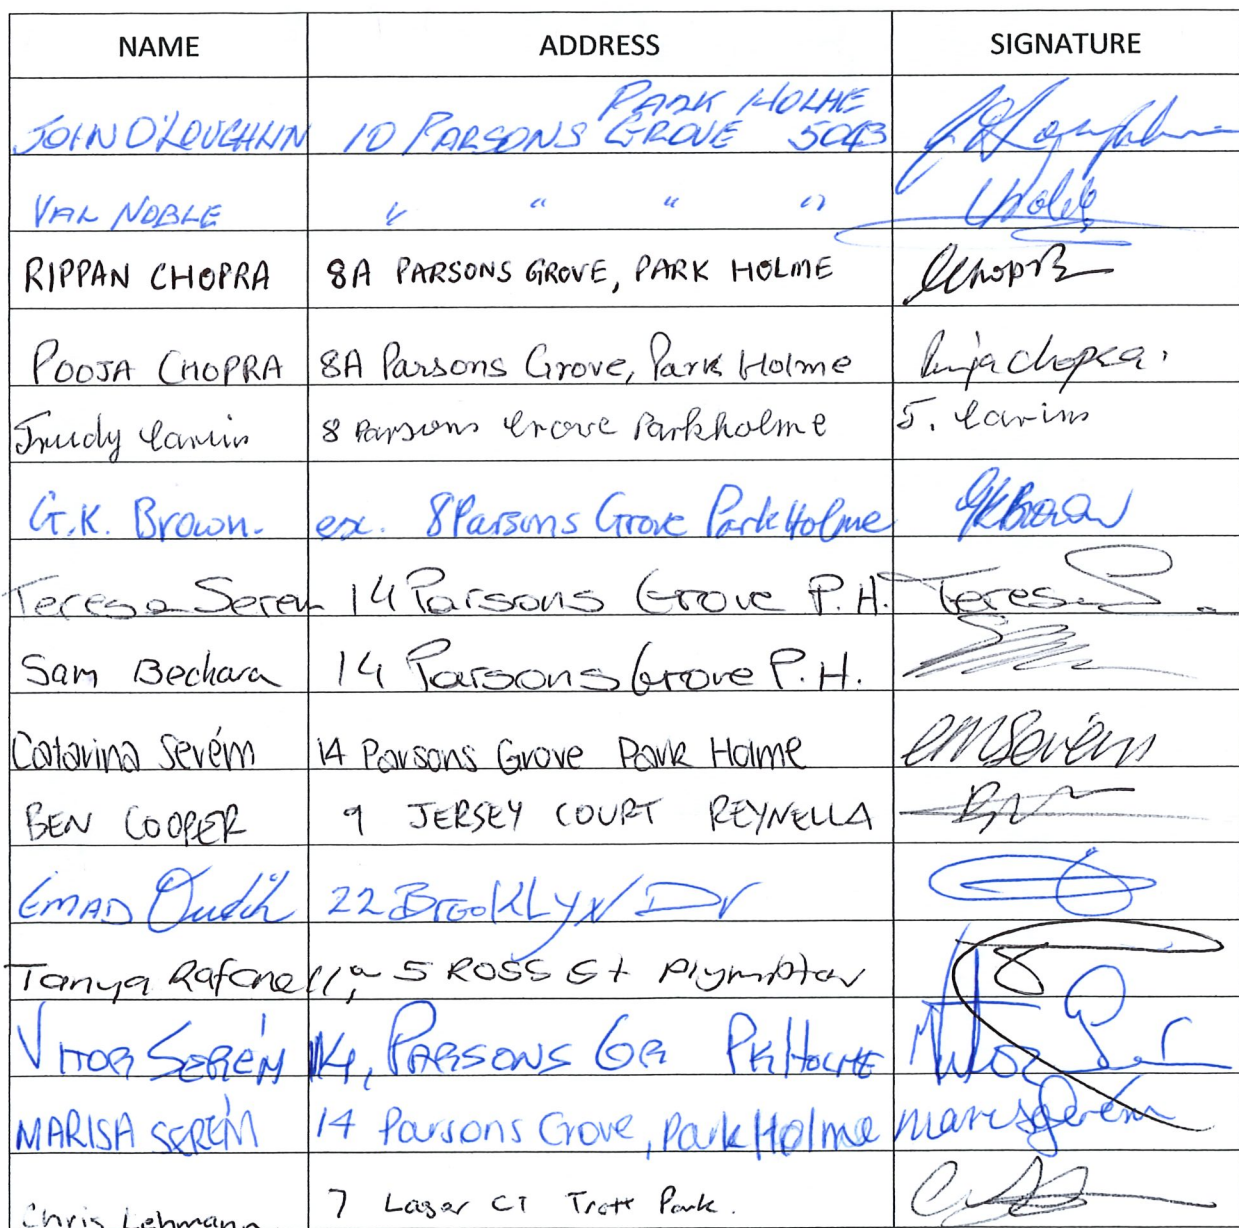 NAME ADDRESS SIGNATURE
PARK HOLME
JOHN O'LOUGHLIN 10 PARSONS GROVE 5043
VAL NOBLE " " " "
RIPPAN CHOPRA 8A PARSONS GROVE, PARK HOLME Chopra
POOJA CHOPRA 8A Parsons Grove, Park Holme Puja Chopra.
Trudy 8 Parsons Grove Parkholme
G.K. Brown. ex. 8 Parsons Grove Park Holme GKBrown
Teresa Serem 14 Parsons Grove P.H. Teresa
Sam Bechara 14 Parsons Grove P.H.
Catarina Serém 14 Parsons Grove Park Holme CMSerém
BEN COOPER 9 JERSEY COURT REYNELLA
EMAD 22 BrooKLyN Dr
Tanya Rafanella, 5 ROSS St Plympton
VITOR SERÉM 14, PARSONS GR PK HOLME Vitor
MARISA SERÉM 14 Parsons Grove, Park Holme Marisa Serém
Chris Lehmann 7 Laser CT Trott Park.